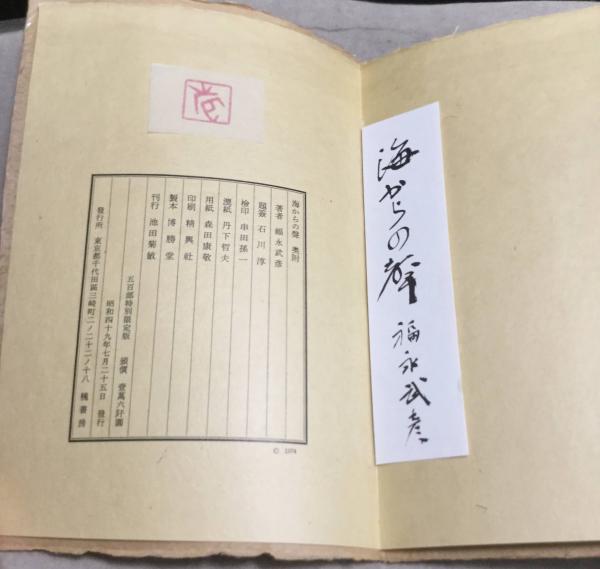 海からの聲 福永武彦
海からの聲 奥附
著者 福永武彦
題簽 石川淳
檢印 串田孫一
漉紙 丹下哲夫
用紙 森田康敬
印刷 精興社
製本 博勝堂
刊行 池田菊敏
五百部特別限定版 頒價 壹萬六阡圓
昭和四十九年七月二十五日 發行
發行所 東京都千代田區三崎町二ノ二十二ノ十八 槐書房
© 1974